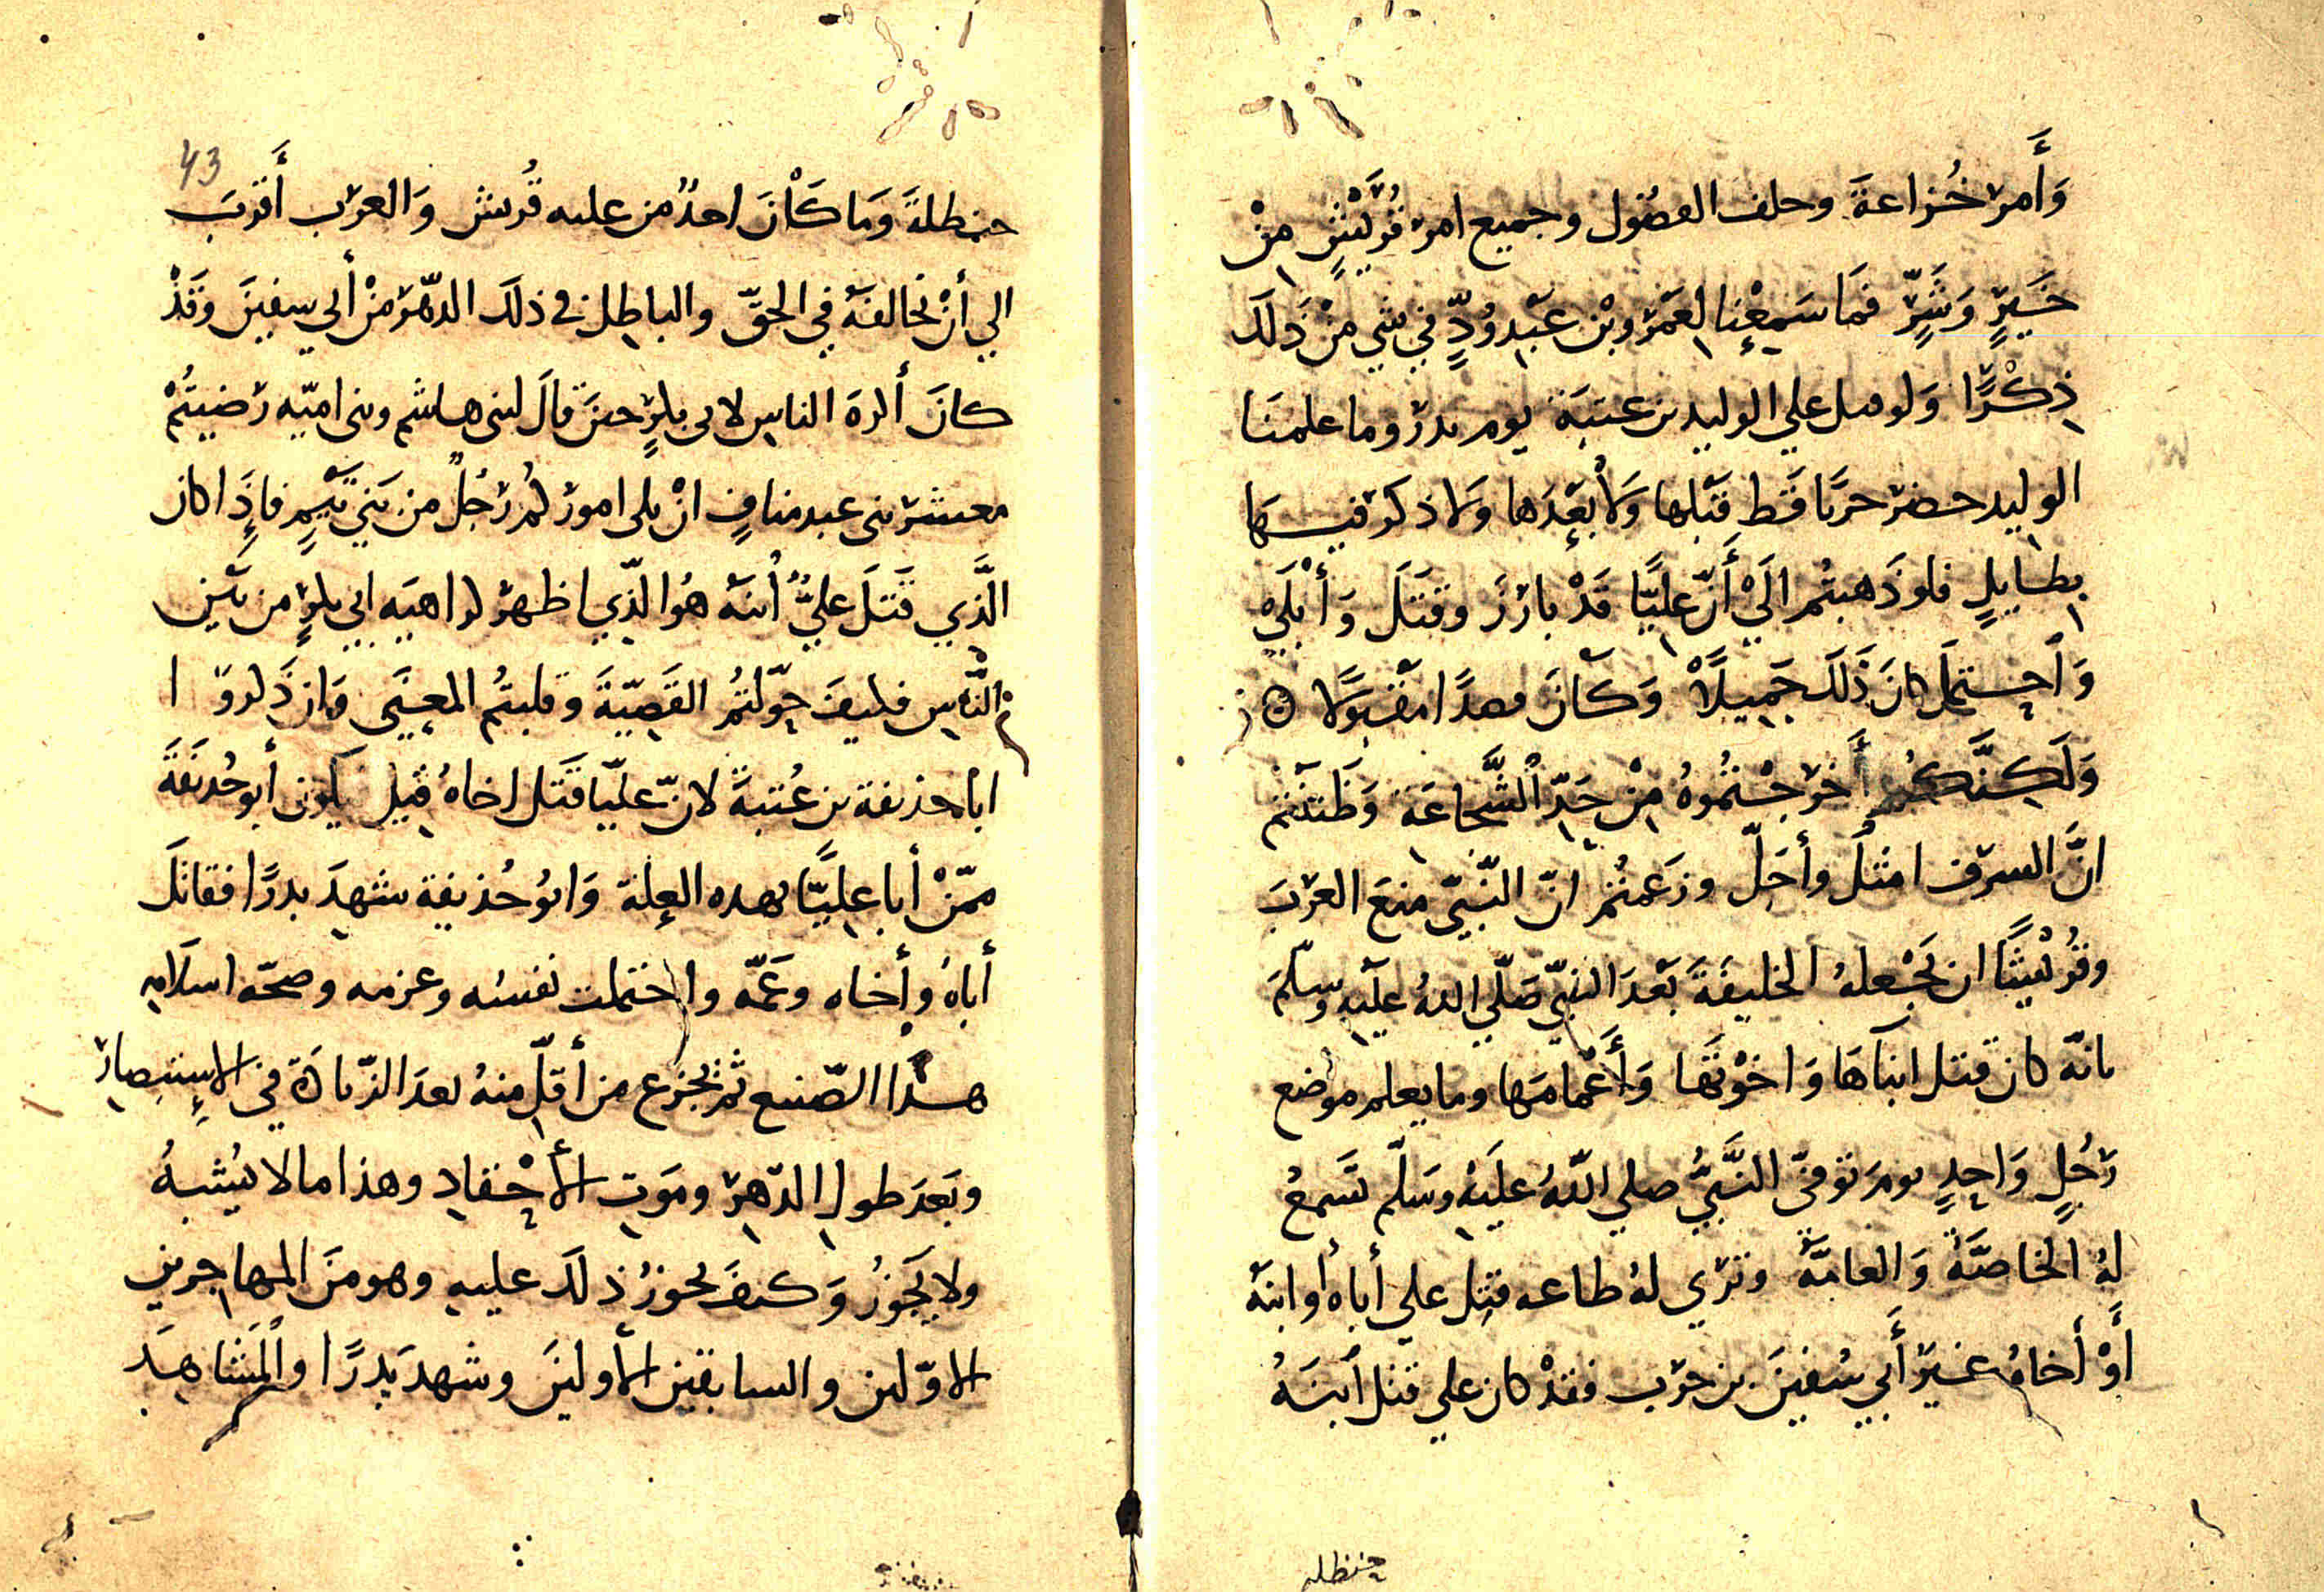 وَأَمر خُزاعةَ وحلف الفضُول وجميع امر قُرَيْشٍ مِنْ
خَيرٍ وَشَرٍّ فمَا سَمِعْنا لعَمْرو بْن عَبْدِ وُدٍّ في شيٍ مِنْ ذَلَك
ذِكْرًا وَلو ميل علي الوليد بن عتبَة يوم بدر وما علمنَا
الوليد حضر حربًا قَط قَبْلها وَلَا بَعْدَها وَلا ذكر فيهَا
بطايلٍ فلو ذَهبتُم الَيْ أَنّ عليًّا قَدْ بارَزَ وقَتَلَ وَأَبْلَيْ
وَاحتمَل كانَ ذَلَك جَمِيلًا وَكَانَ قصدًا مَقْبولًا ۞
وَلَكِنَّكُم أَخرَجْتمُوهُ مِنْ حَدِّ الشَّجَاعَة وَظَننْتم
انَّ السرف امثلُ وأَجَلّ وزَعمتُم انّ النَّبيّ منعَ العرَبَ
وقُرَيْشًا ان تَجْعلهُ الخليفَةَ بَعْدَ النبيّ صَلّي اللهُ علَيْهِ وسلّمَ
بانّه كان قتل ابنآهَا وَاخوْتَهَا وَأَعْمامَها وما يعلم موضع
رَجُلٍ وَاحِدٍ يومَ تَوَفّى النَّبيُّ صلي اللّهُ علَيْهِ وسَلّم تسَمعُ
لهُ الخاصَّةُ وَالعامَّة وترَي لهُ طاعه قتِل علي أباهُ أو ابنَهُ
أَوْ أخاهُ غيرَ أَبي سُفينَ بن حَرب فقدْ كان علي قتل ابنَهُ
حنظله
43
حنظلةَ وَمَا كَانَ احدٌ من عليه قُريش وَالعرَب أَقرَبَ
الي أنْ تخالفهُ في الحقّ والباطِل في ذلكَ الدهْر مِنْ أبي سفينَ وَقَدْ
كانَ أكرهَ الناسِ لابى بكرٍ حينَ قالَ لبنى هاشم وبنى اميّه رَضيتُمْ
معشر بنى عبد منافٍ انْ يلى امورَكمُ رَجُلٌ من بَني تَيْمٍ فاذَا كان
الَّذي قَتلَ عليٌّ أبنَهُ هُوَ الّذي اظهرَ كراهيَه ابي بكرٍ من بَيْنِ
النَّاسِ فكيفَ حوّلتُمُ القَضيّةَ وقلبتُم المعنَى وَان ذَكروَا
ابا حذيفة بن عُتبةَ لانّ عليًّا قَتَل اخاهُ قيل يكون أبو حُذيفَةَ
ممّنْ أبا عليًّا بهذه العِلة وَابُو حُذيفة شهدَ بدرًا فقاتلَ
أباهُ وأخاه وعَمّه واحتملت نفسُه وعزمه وصحّه اسلَامِه
هذَا الصّنيع ثم يَجزع من أقلّ منهُ بعدَ الزّيادَة في الاِستبِصارِ
وبَعدَ طولِ الدّهرِ ومَوتِ الأَحْقادِ وهذا ما لا يُشبهُ
ولا يَجُوزُ وَكيفَ يجوزُ ذلكَ عليهِ وهو منَ المهاجرين
الاوّلين والسابقين الأولينَ وشهدَ بَدرًا والمَشَاهِدَ